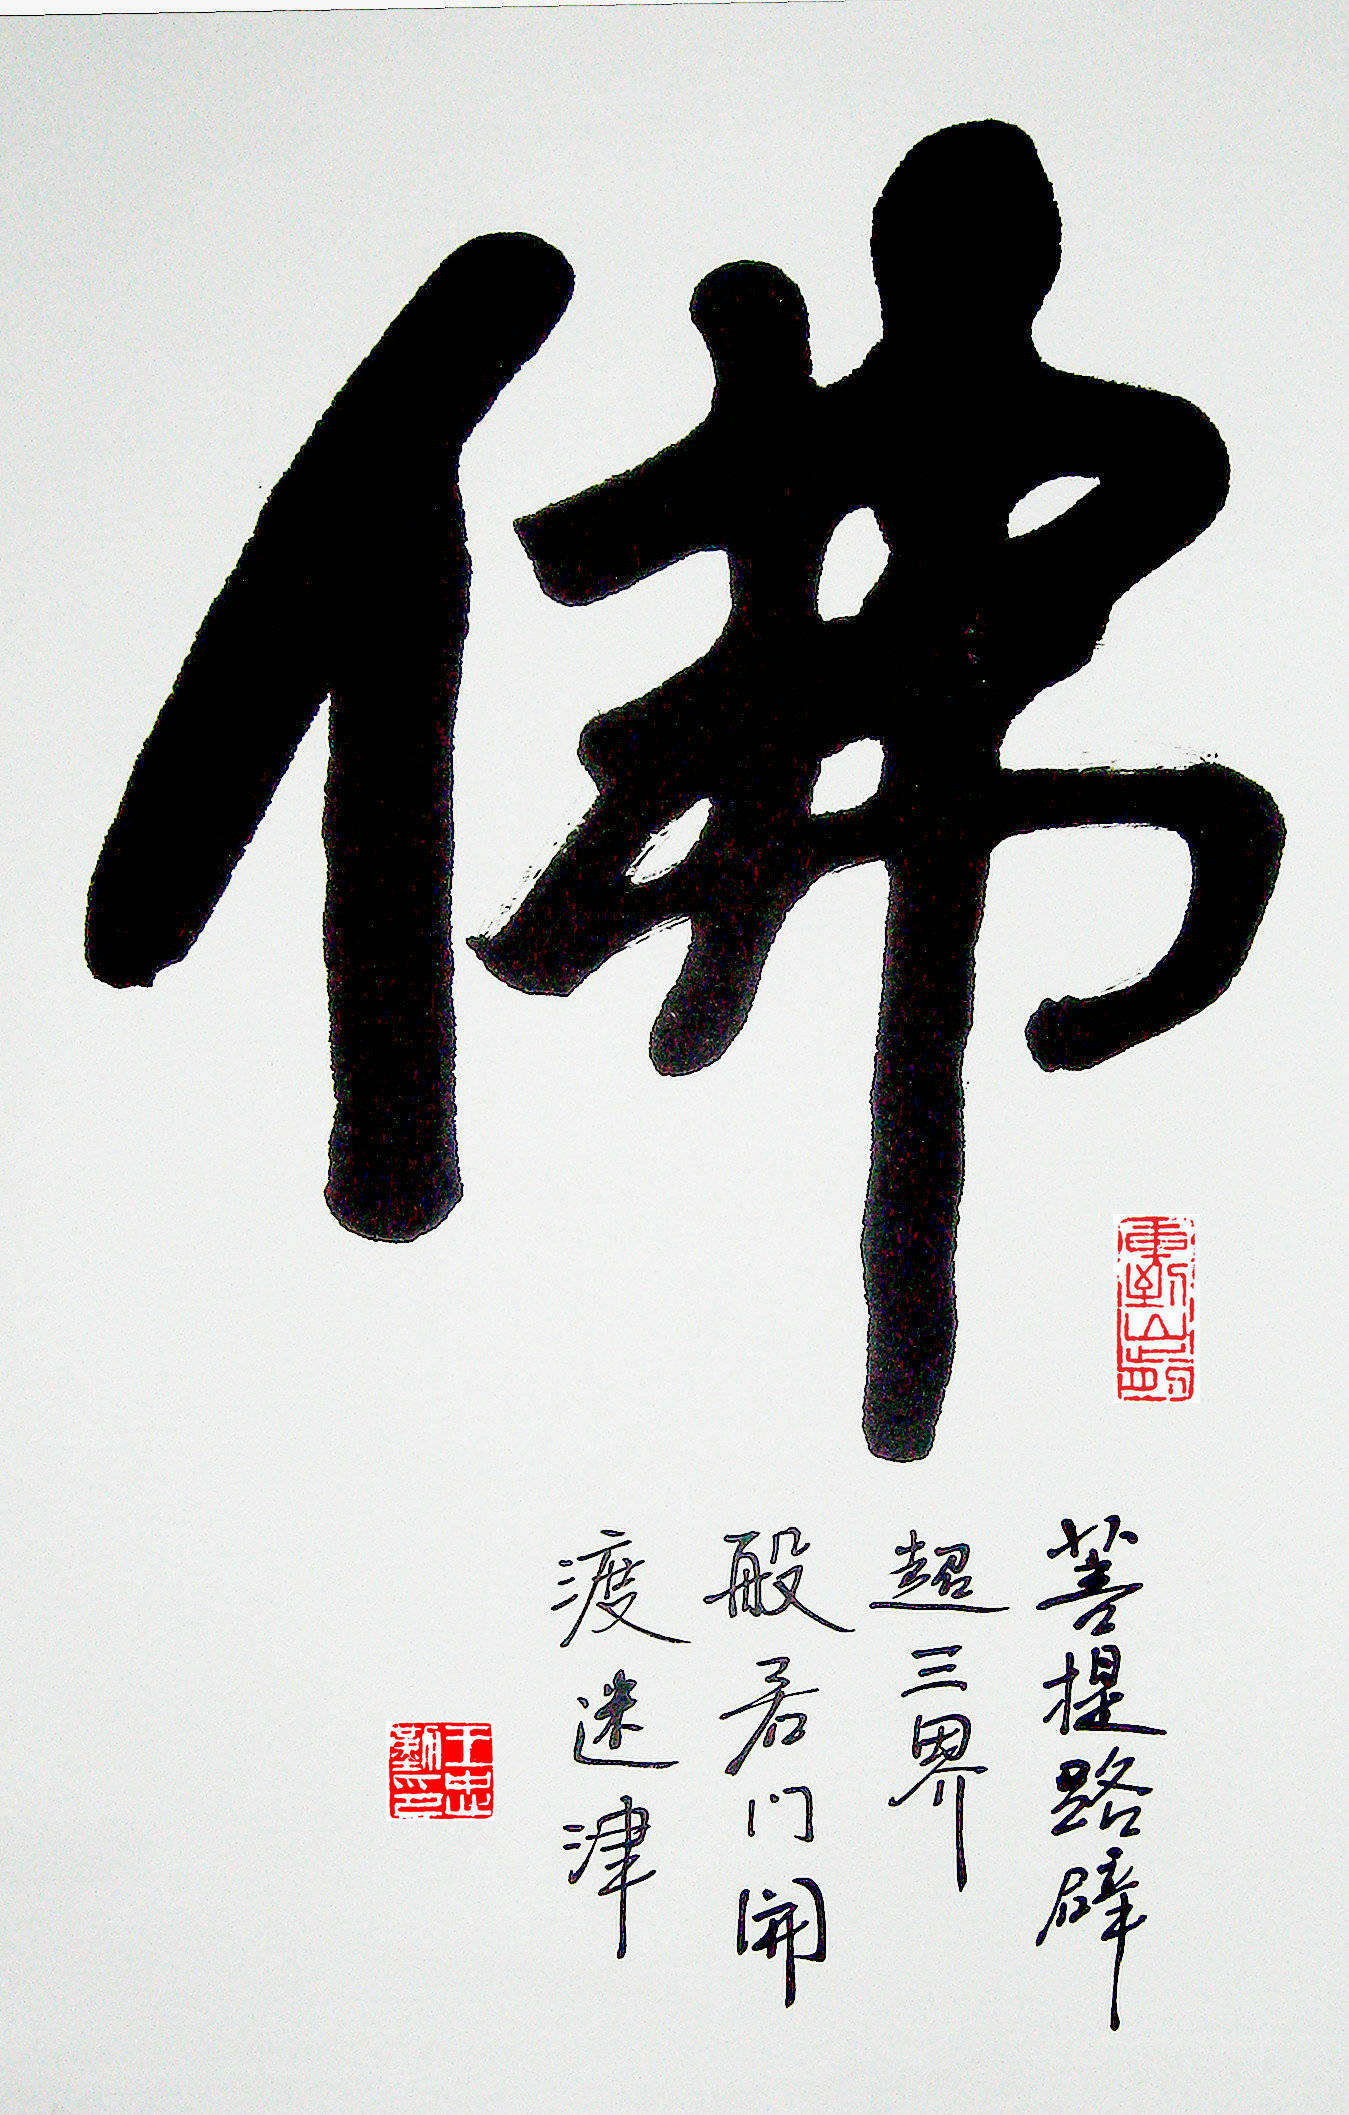 佛
菩提路辟
超三界
般若门開
渡迷津
王忠勤印